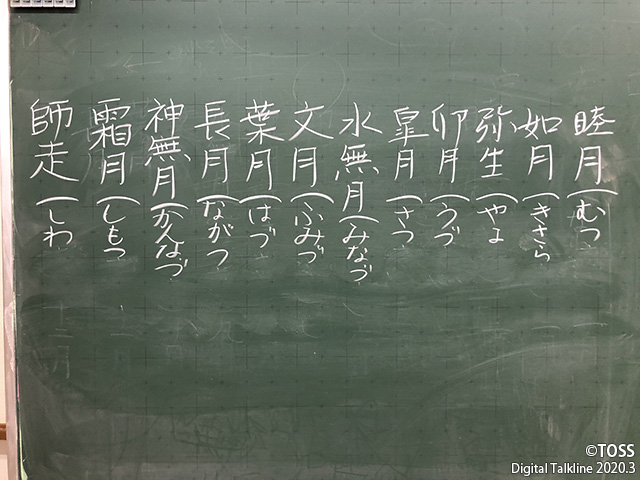 睦月(むつ
如月(きさら
弥生(やよ
卯月(うづ
皐月(さつ
水無月(みなづ
文月(ふみづ
葉月(はづ
長月(ながつ
神無月(かんなづ
霜月(しもつ
師走(しわ
©TOSS
Digital Talkline 2020.3